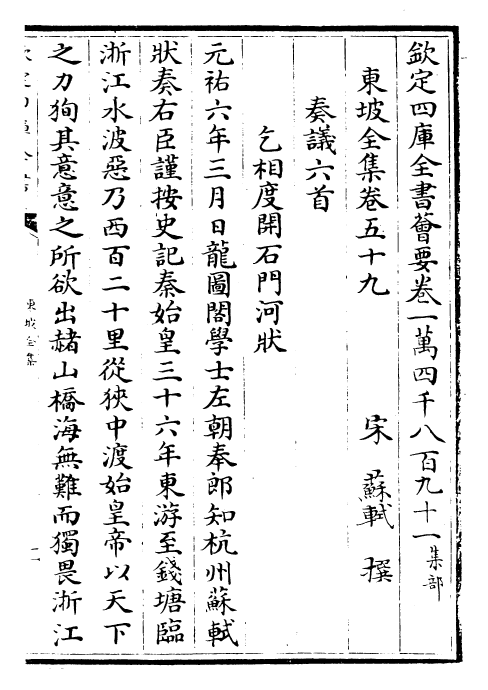 欽定四庫全書薈要卷一萬四千八百九十一集部
東坡全集卷五十九
宋 蘇軾 撰
奏議六首
乞相度開石門河狀
元祐六年三月日龍圖閣學士左朝奉郎知杭州蘇軾
狀奏右臣謹按史記秦始皇三十六年東游至錢塘臨
浙江水波惡乃西百二十里從狹中渡始皇帝以天下
之力狥其意意之所欲出赭山橋海無難而獨畏浙江
東坡全集